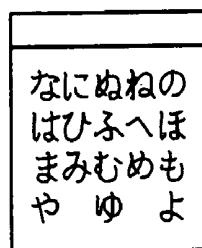 なにぬねの
はひふへほ
まみむめも
や ゆ よ